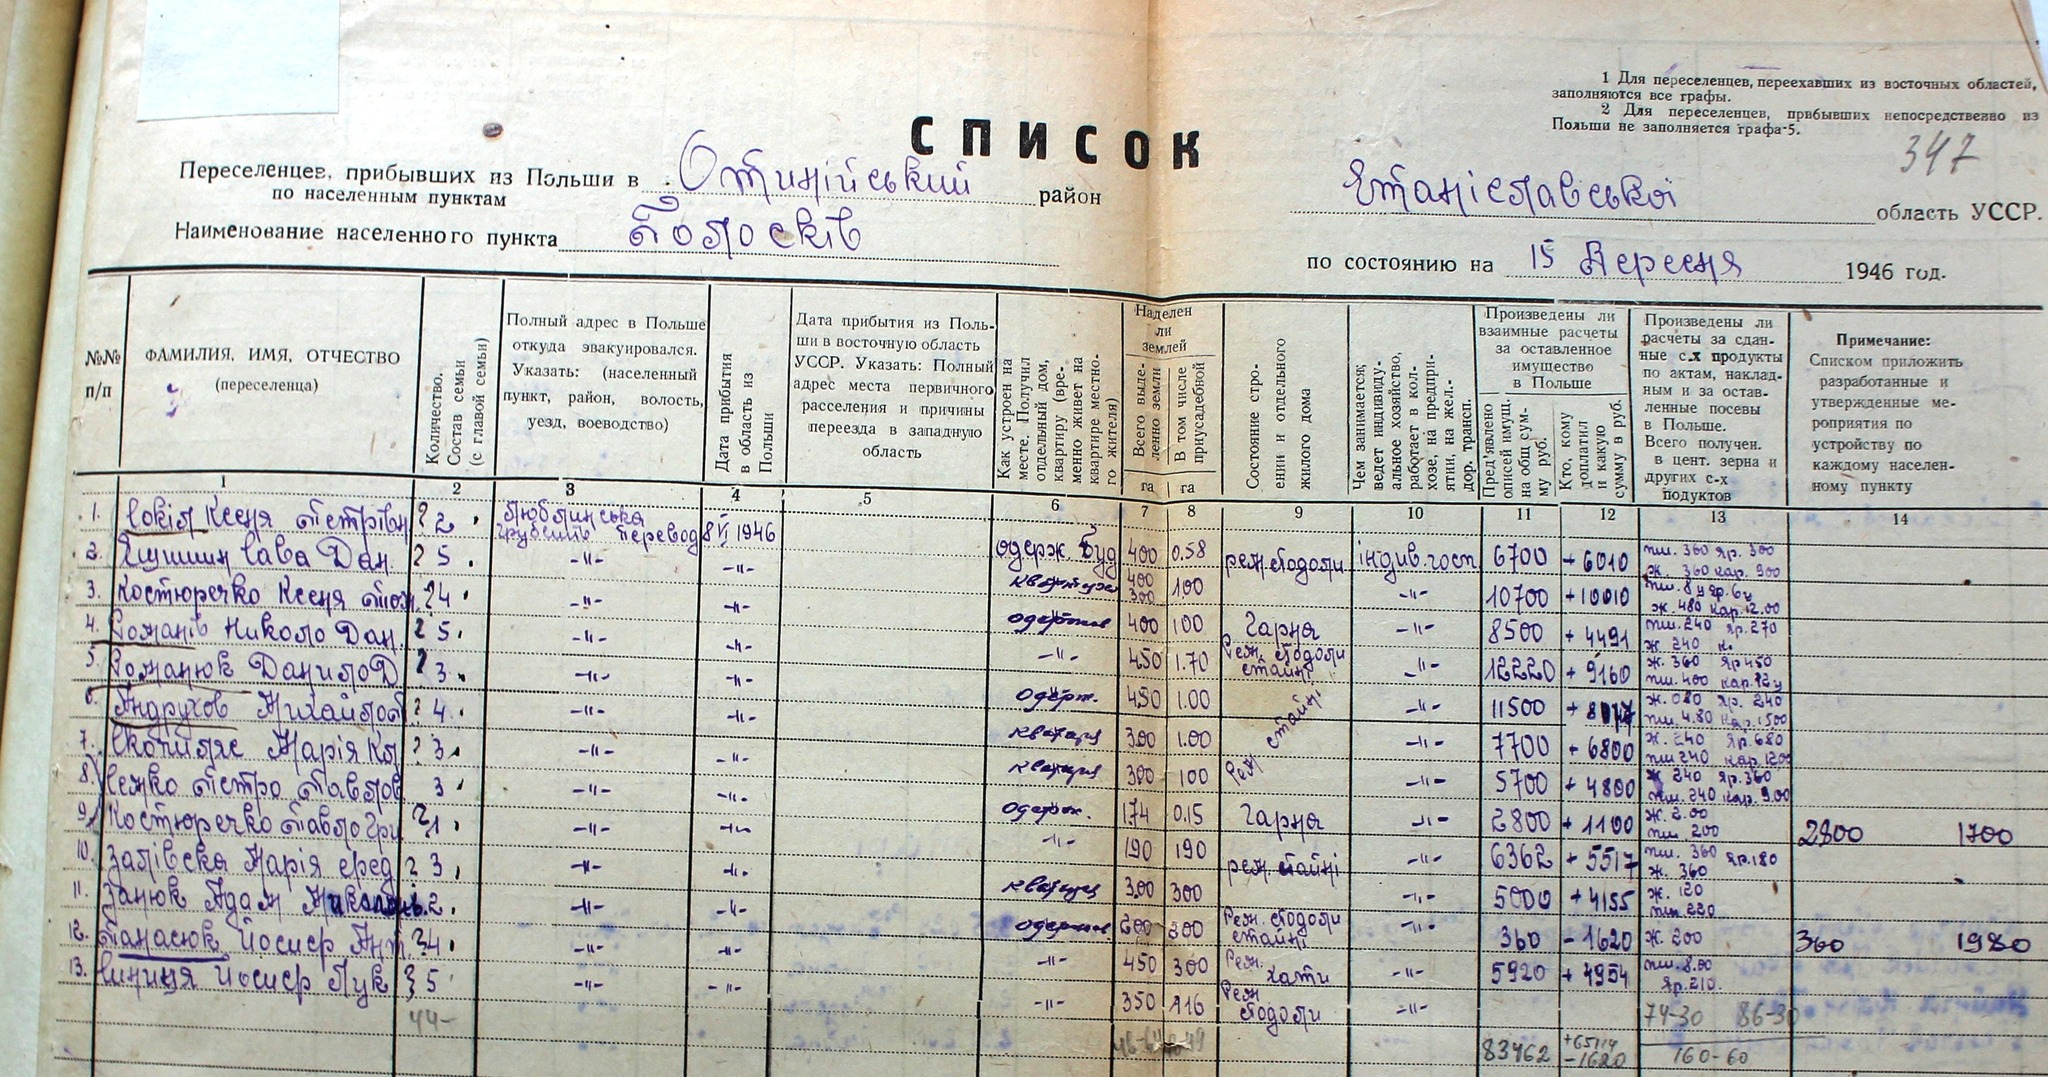 1 Для переселенцев, переехавших из восточных областей,
заполняются все графы.
2 Для переселенцев, прибывших непосредственно из
Польши не заполняется графа-5.
347
СПИСОК
Переселенцев, прибывших из Польши в Отинійський район Станіславської область УССР.
по населенным пунктам
Наименование населенного пункта Голосків
по состоянию на 15 Вересня 1946 год.
№№ п/п
ФАМИЛИЯ, ИМЯ, ОТЧЕСТВО (переселенца)
Количество. Состав семьи (с главой семьи)
Полный адрес в Польше откуда эвакуировался. Указать: (населенный пункт, район, волость, уезд, воеводство)
Дата прибытия в область из Польши
Дата прибытия из Польши в восточную область УССР. Указать: Полный адрес места первичного расселения и причины переезда в западную область
Как устроен на месте. Получил отдельный дом, квартиру (временно живет на квартире местного жителя)
Наделен ли землей
Всего выделенно земли
В том числе приусадебной
га га
Состояние строении и отдельного жилого дома
Чем занимается; ведет индивидуальное хозяйство, работает в колхозе, на предприятии, на жел.-дор. трансп.
Произведены ли взаимные расчеты за оставленное имущество в Польше
Пред'явлено описей имущ. на общ сумму руб.
Кто, кому доплатил и какую сумму в руб.
Произведены ли расчеты за сданные с.х продукты по актам, накладным и за оставленные посевы в Польше. Всего получен. в цент. зерна и других с-х подуктов
Примечание: Списком приложить разработанные и утвержденные мероприятия по устройству по каждому населенному пункту
1 2 3 4 5 6 7 8 9 10 11 12 13 14
1. Сокіл Ксеня Петрівн 2 Люблинська Грубешів Перевод 8 VI 1946 одерж. буд 400 0.58 рем. стодоли індив. госп 6700 + 6010 пш. 360 яр. 300 ж. 360 кар. 900
2. Сава Дан. 5 -"- -"- квартира 400 300 100 -"- 10700 + 10010 пш. 8 ц яр. 6 ц ж. 480 кар. 12.00
3. Костюречко Ксеня 4 -"- -"- 400 100 Гарна -"- 8500 + 4491 пш. 240 яр. 270 ж. 240
4. Романів Николо Дан. 5 -"- -"- -"- 450 1.70 Рем. стодоли стайні -"- 12220 + 9160 ж. 360 яр 450 пш. 400 кар. 12 ц
5. Романюк Данило Д 3 -"- -"- одерж. 450 1.00 стайні -"- 11500 ж. 080 яр. 240 пш. 4.80 кар. 1500
6. Андрухов Михайло 4 -"- -"- 300 1.00 -"- 7700 + 6800 ж. 240 яр. 680 пш 240 кар. 1200
7. Марія 3 -"- -"- 300 100 Рем -"- 5700 + 4800 ж 240 яр. 360 пш. 240 кар. 9.00
8. Петро Павлов 3 -"- -"- одерж. 174 0.15 Гарна -"- 2800 + 1100 ж. 2.00 пш. 200 2800 1700
9. Костюречко Павло Гри 1 -"- -"- -"- 190 190 рем. стайні -"- 6362 + 5517 пш. 360 яр. 180 ж. 360
10. Марія 3 -"- -"- 300 300 -"- 5000 + 4155 ж. 120 пш 220
11. Адам 2 -"- -"- 300 Рем. стодоли стайні -"- 360 - 1620 ж. 200 360 1980
12. Панасюк Йосип Ант. 4 -"- -"- -"- 450 300 Рем. хати -"- 5920 + 4954 пш. 8.00 яр. 210
13. Йосип Лук 5 -"- -"- -"- 350 116 Рем стодоли -"- 74-30 86-30
44- 83462 +65114 -1620 160-60